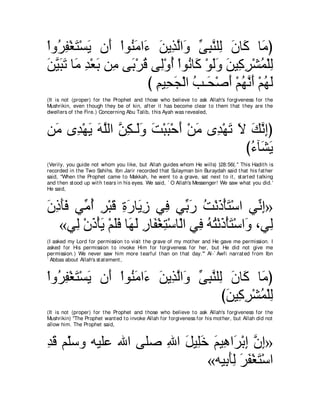 ﴿مَا كَانَ لِلنَّبِىِّ وَالَّذِينَ ءَامَنُواْ أَن يَسْتَغْفِرُواْ
لِلْمُشْرِكِينَ وَلَوْ كَانُواْ أُوْلِى قُرْبَى مِن بَعْدِ مَا تَبَيَّنَ
لَهُمْ أَنَّهُمْ أَصْحَـبُ الْجَحِيمِ ﴾
(It is not (proper) for the Prophet and those who believe to ask Allah's forgiveness for the Mushrikin, even though they be of kin, after it has become clear to them that they are the dwellers of the Fire.) Concerning Abu Talib, this Ayah was revealed,
﴿إِنَّكَ لاَ تَهْدِى مَنْ أَحْبَبْتَ وَلَـكِنَّ اللَّهَ يَهْدِى مَن
يَشَآءُ﴾
(Verily, you guide not whom you like, but Allah guides whom He wills) [28:56].'' This Hadith is recorded in the Two Sahihs. Ibn Jarir recorded that Sulayman bin Buraydah said that his father said, "When the Prophet came to Makkah, he went to a grave, sat next to it, started talking and then stood up with tears in his eyes. We said, `O Allah's Messenger! We saw what you did.' He said,
«إِنِّي اسْتَأْذَنْتُ رَبِّي فِي زِيَارَةِ قَبْرِ أُمِّي فَأَذِنَ
لِي، وَاسْتَأْذَنْتُهُ فِي الْاسْتِغْفَارِ لَهَا فَلَمْ يَأْذَنْ لِي»
(I asked my Lord for permission to visit the grave of my mother and He gave me permission. I asked for His permission to invoke Him for forgiveness for her, but He did not give me permission.) We never saw him more tearful than on that day.''' Al-`Awfi narrated from Ibn `Abbas about Allah's statement,
﴿مَا كَانَ لِلنَّبِىِّ وَالَّذِينَ ءَامَنُواْ أَن يَسْتَغْفِرُواْ
لِلْمُشْرِكِينَ﴾
(It is not (proper) for the Prophet and those who believe to ask Allah's forgiveness for the Mushrikin) "The Prophet wanted to invoke Allah for forgiveness for his mother, but Allah did not allow him. The Prophet said,
«إِنَّ إِبْرَاهِيمَ خَلِيلَ اللهِ صلى الله عليه وسلم قَدِ
اسْتَغْفَرَ لِأَبِيه»